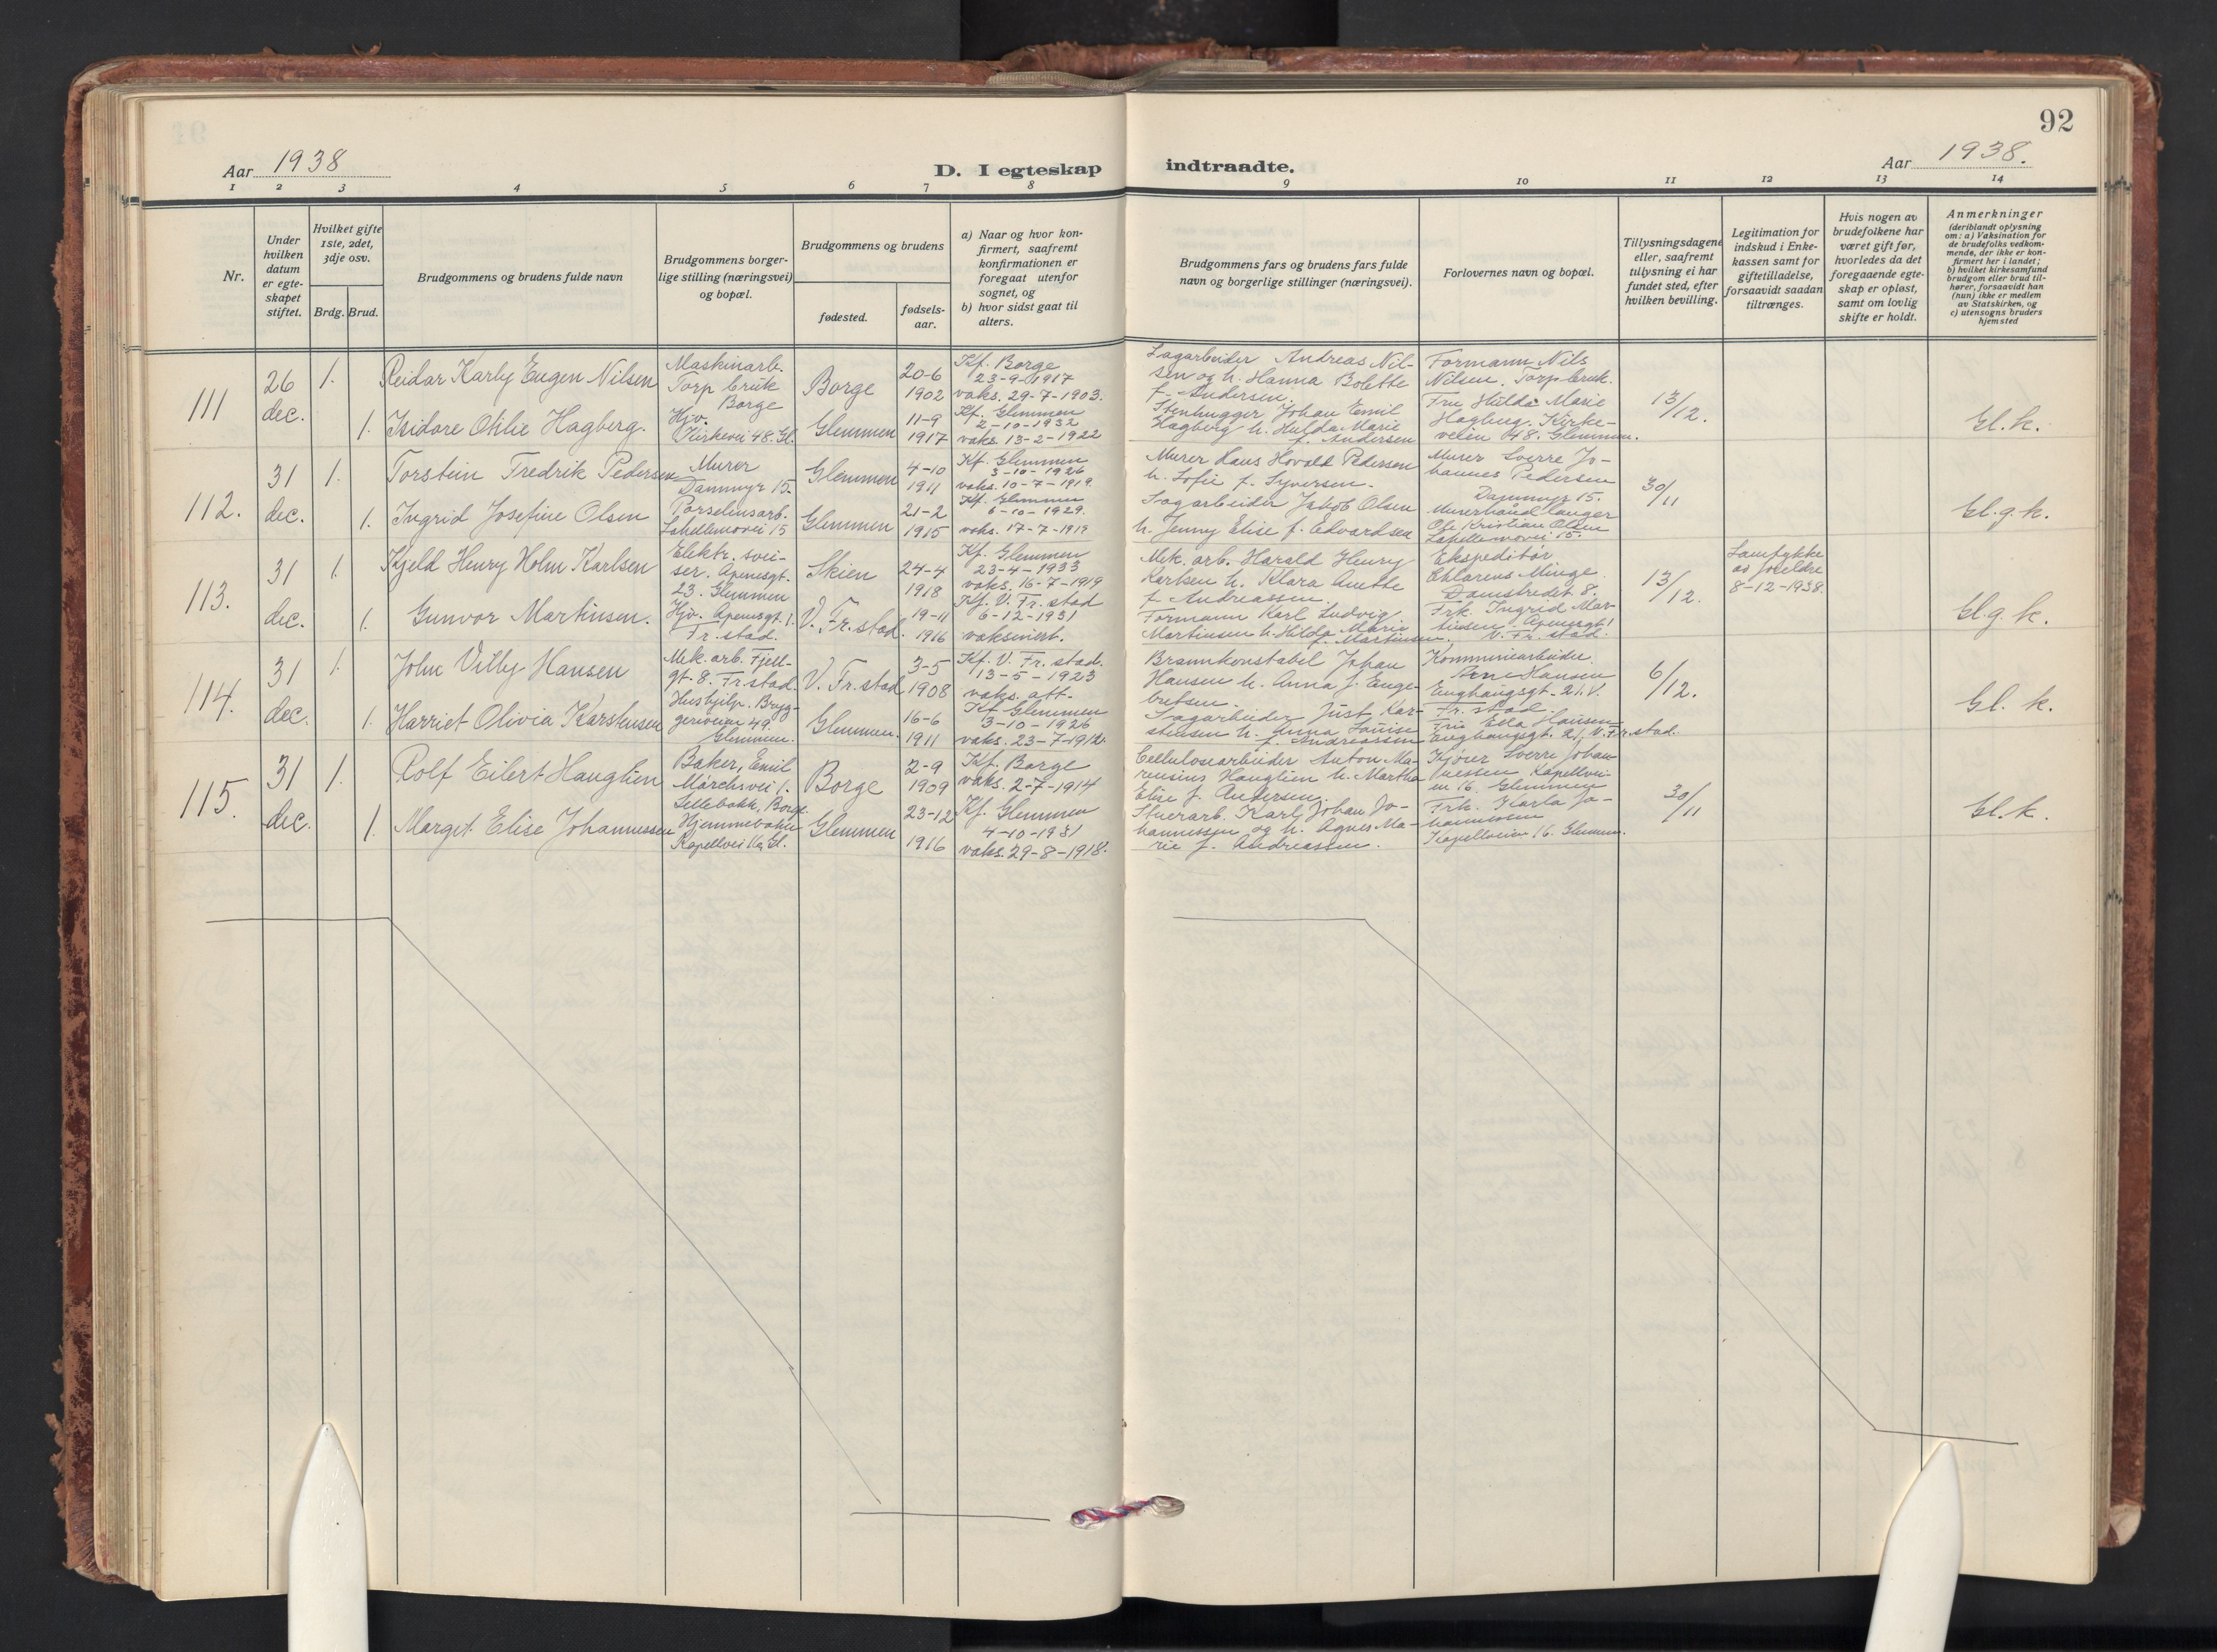 92
Aar 1938
D. I egteskap indtraadte.
Aar 1938.
1 2 3 4 5 6 7 8 9 10 11 12 13 14
Nr.
Under hvilken datum er egte-skapet stiftet.
Hvilket gifte 1ste, 2det, 3dje osv.
Brdg. Brud.
Brudgommens og brudens fulde navn
Brudgommens borger-lige stilling (næringsvei) og bopæl.
Brudgommens og brudens
fødested.
fødsels-aar.
a) Naar og hvor kon-firmert, saafremt konfirmationen er foregaat utenfor sognet, og
b) hvor sidst gaat til alters.
Brudgommens fars og brudens fars fulde navn og borgerlige stillinger (næringsvei).
Forlovernes navn og bopæl.
Tillysningsdagene eller, saafremt tillysning ei har fundet sted, efter hvilken bevilling.
Legitimation for indskud i Enke-kassen samt for giftetilladelse, forsaavidt saadan tiltrænges.
Hvis nogen av brudefolkene har været gift før, hvorledes da det foregaaende egte-skap er opløst, samt om lovlig skifte er holdt.
Anmerkninger (deriblandt oplysning om: a) Vaksination for de brudefolks vedkom-mende, der ikke er kon-firmert her i landet; b) hvilket kirkesamfund brudgom eller brud til-hører, forsaavidt han (hun) ikke er medlem av Statskirken, og c) utensogns bruders hjemsted
111
26 dec.
1.
Reidar Karly Eugen Nilsen
Maskinarb.
Torp bruk
Borge
Borge
20-6
1902
Kf. Borge
23-9-1917
vaks. 29-7-1903.
Sagarbeider Andreas Nil-
sen og h. Hanna Bolette
f. Andersen.
Formann Nils
Nilsen. Torp bruk.
13/12.
Gl. k.
1.
Isidore Otilie Hagberg.
Hjv.
Kirkevei 48. Gl.
Glemmen
11-9
1917
Kf. Glemmen
2-10-1932
vaks. 13-2-1922
Stenhugger Johan Emil
Hagberg h. Hulda Marie
f. Andersen
Fru Hilda Marie
Hagberg. Kirke-
veien 48. Glemmen.
112.
31 dec.
1.
Torstein Fredrik Pedersen
Murer
Dammyr 15.
Glemmen
4-10
1911
Kf. Glemmen
3-10-1926
vaks. 10-7-1919
Murer Hans Hovald Pedersen
h. Sofie f. Syversen.
Murer Sverre Jo-
hannes Pedersen
Dammyr 15.
30/11
Gl. g. k.
1.
Ingrid Josefine Olsen
Porselensarb.
Glemmen
21-2
1915
Kf. Glemmen
6-10-1929.
vaks. 17-7-1919
Sagarbeider Jakob Olsen
h. Jenny Elise f. Edvardsen
Murerhåndlanger
Ole Kristian Olsen
113.
31 dec.
1.
Kjeld Henry Holm Karlsen
Elektr. svei-
ser. Apenesgt.
23. Glemmen
Skien
24-4
1918
Kf. Glemmen
23-4-1933
vaks. 16-7-1919
Mek. arb. Harald Henry
Karlsen h. Klara Anette
f. Andreassen.
Ekspeditør
Minge
Damstredet 8.
13/12.
Samtykke
av foreldre
8-12-1938.
Gl. g. k.
1.
Gunvor Martinsen.
Hjv. Apenesgt. 1.
Fr.stad.
V. Fr.stad.
19-11
1916
Kf. V. Fr.stad
6-12-1931
vaksinert.
Formann Karl Ludvig
Martinsen h. Hilda Marie
f. Martinsen.
Frk. Ingrid Mar-
tinsen. Apenesgt 1
V. Fr. stad.
114.
31 dec.
1.
John Villy Hansen
Mek. arb. Fjell-
gt. 8. Fr.stad.
V. Fr.stad
3-5
1908
Kf. V. Fr.stad.
13-5-1923
vaks. att.
Brannkonstabel Johan
Hansen h. Anna f. Enge-
bretsen.
Kommunearbeider
Arne Hansen
Enghaugsgt. 21. V.
Fr. stad.
6/12.
Gl. k.
1.
Harriet Olivia Karstensen
Hushjelp. Bryg-
geriveien 49.
Glemmen.
Glemmen.
16-6
1911
Kf. Glemmen
3-10-1926
vaks. 23-7-1912.
Sagarbeider Just Kar-
stensen h. Anna Louise
f. Andreassen
Fru Ella Hansen
Enghaugsgt. 21, V. Fr.stad.
115.
31 dec.
1.
Rolf Eilert Hauglien
Baker, Emil
Mörchsvei 1.
Sellebakk, Borge
Borge
2-9
1909
Kf. Borge
vaks. 2-7-1914
Cellulosearbeider Anton Ma-
rensius Hauglien h. Martha
Elise f. Andersen.
Kjører Sverre Johan-
nessen Kapellvei-
en 16. Glemmen
30/11
Gl. k.
1.
Margit Elise Johannessen
Hjemmebok
Kapellvei 16, Gl.
Glemmen
23-12
1916
Kf. Glemmen
4-10-1931
vaks. 29-8-1918.
Stuerarb. Karl Johan Jo-
hannessen og h. Agnes Ma-
rie f. Andreassen.
Frk. Karla Jo-
hannessen
Kapellveien 16. Glemmen.